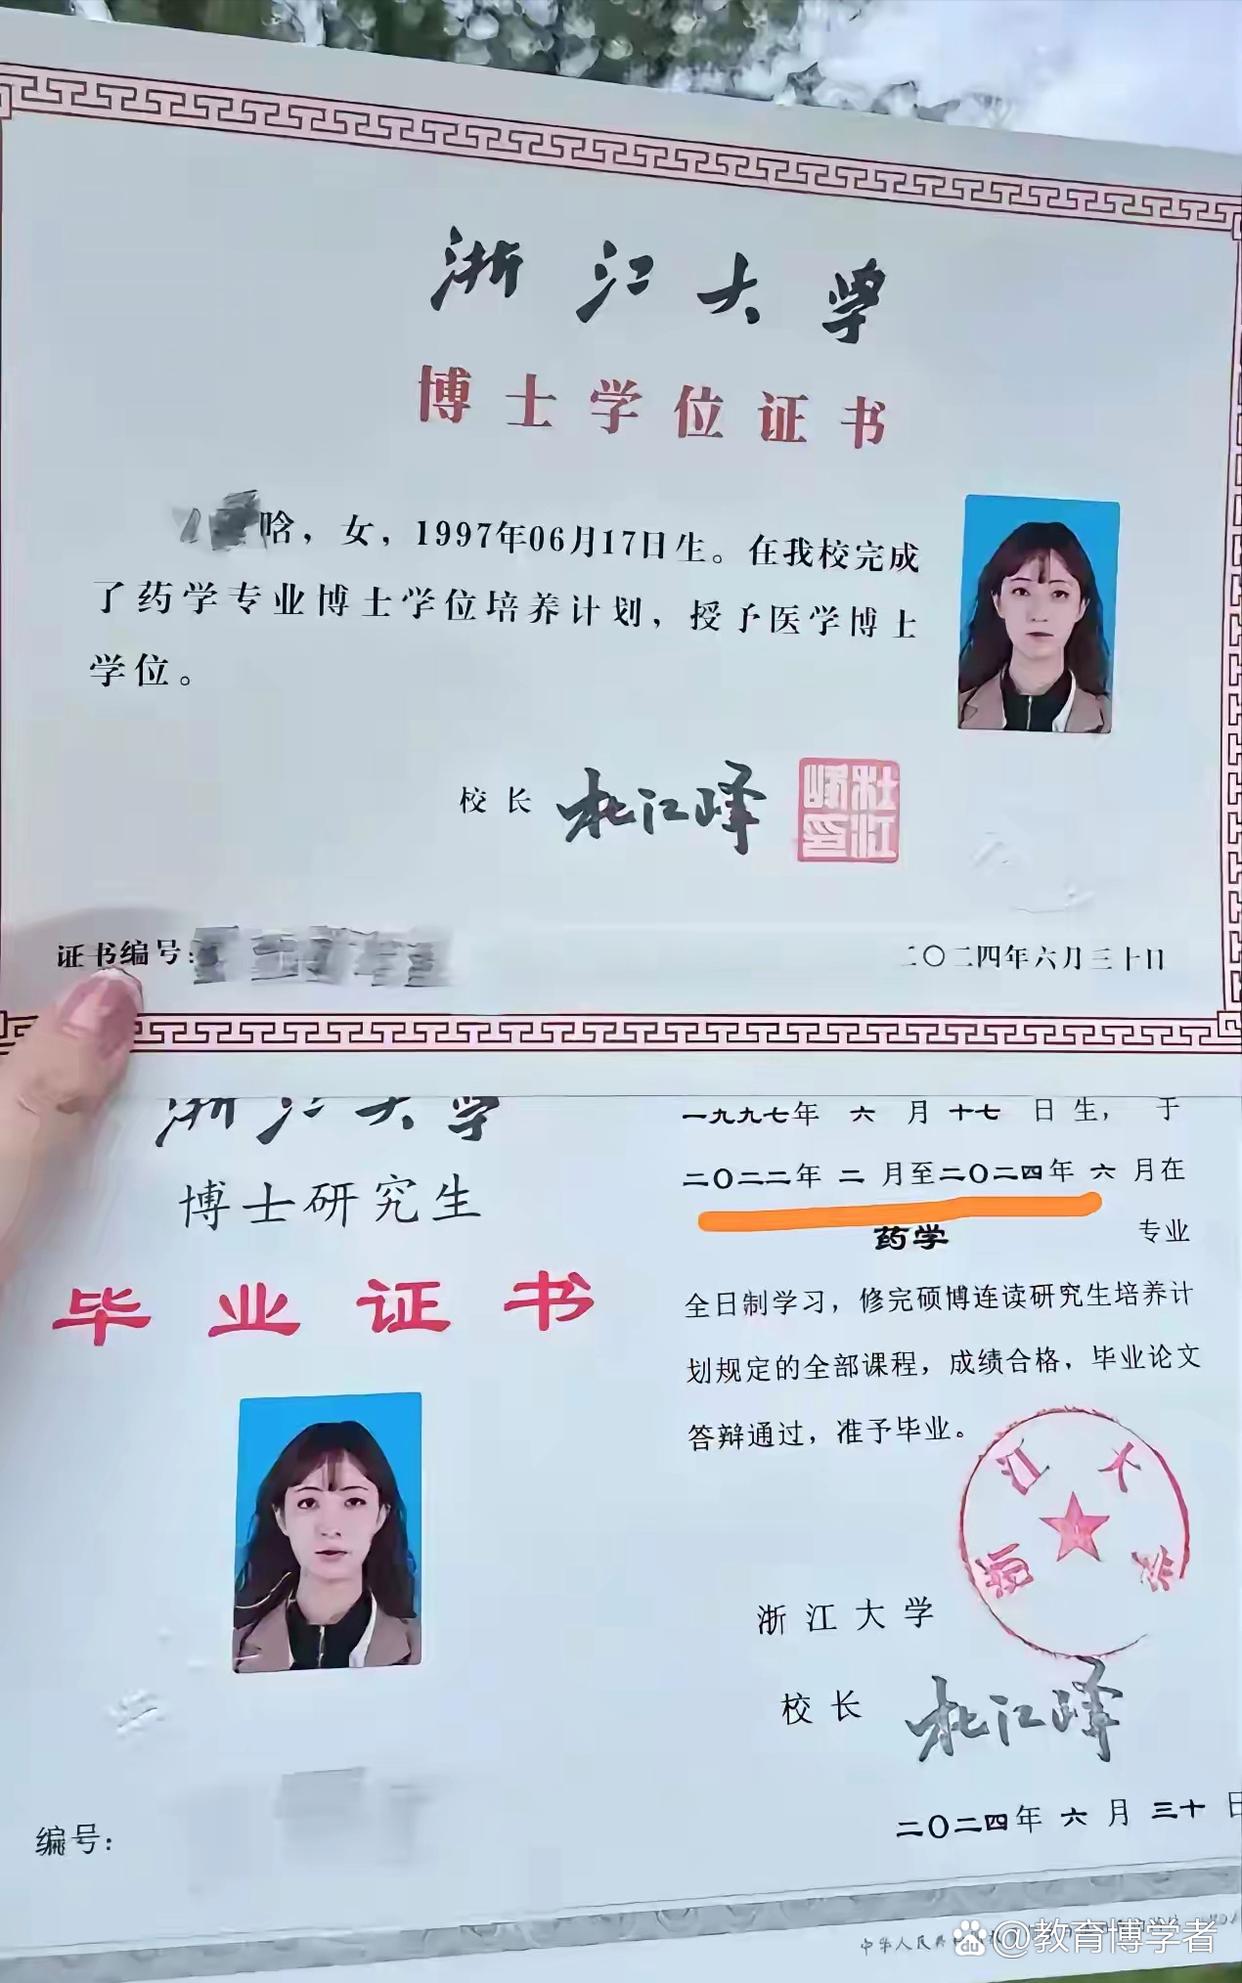 浙江大学
博士学位证书
晗，女，1997年06月17日生。在我校完成
了药学专业博士学位培养计划，授予医学博士
学位。
校长 杜江峰
杜江峰印
证书编号:
二〇二四年六月三十日
浙江大学
博士研究生
毕业证书
编号:
一九九七年 六 月 十七 日生， 于
二〇二二年 二 月至二〇二四年 六 月在
药学 专业
全日制学习，修完硕博连读研究生培养计
划规定的全部课程，成绩合格，毕业论文
答辩通过，准予毕业。
浙江大学
浙江大学
校长 杜江峰
二〇二四年 六 月 三十 日
中华人民共
@教育博学者